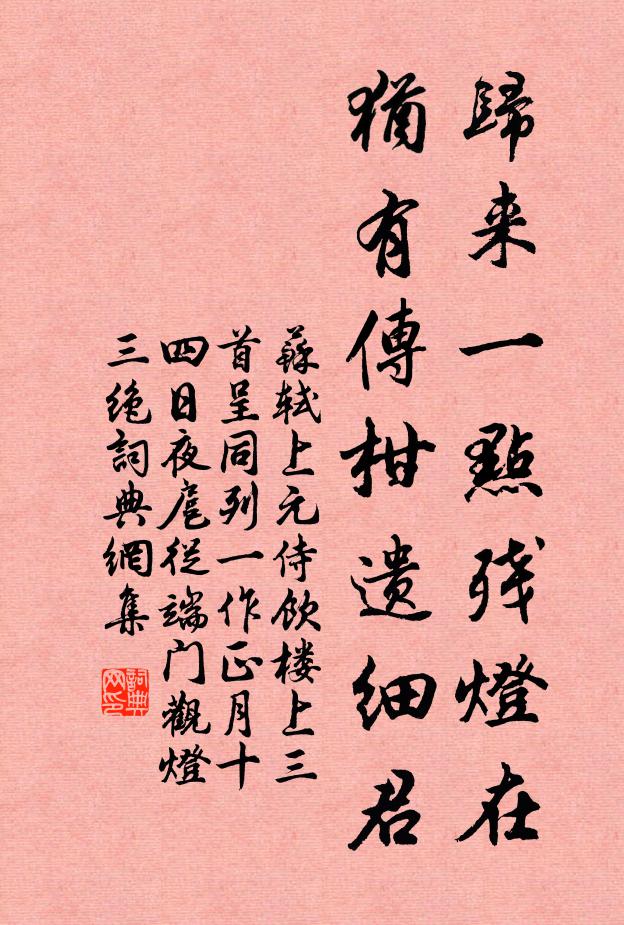 歸来一點残燈在
猶有傳柑遺細君
蘇軾上元侍飲楼上三
首呈同列一作正月十
四日夜扈從端门觀燈
三绝詞典網集
詞典
网印